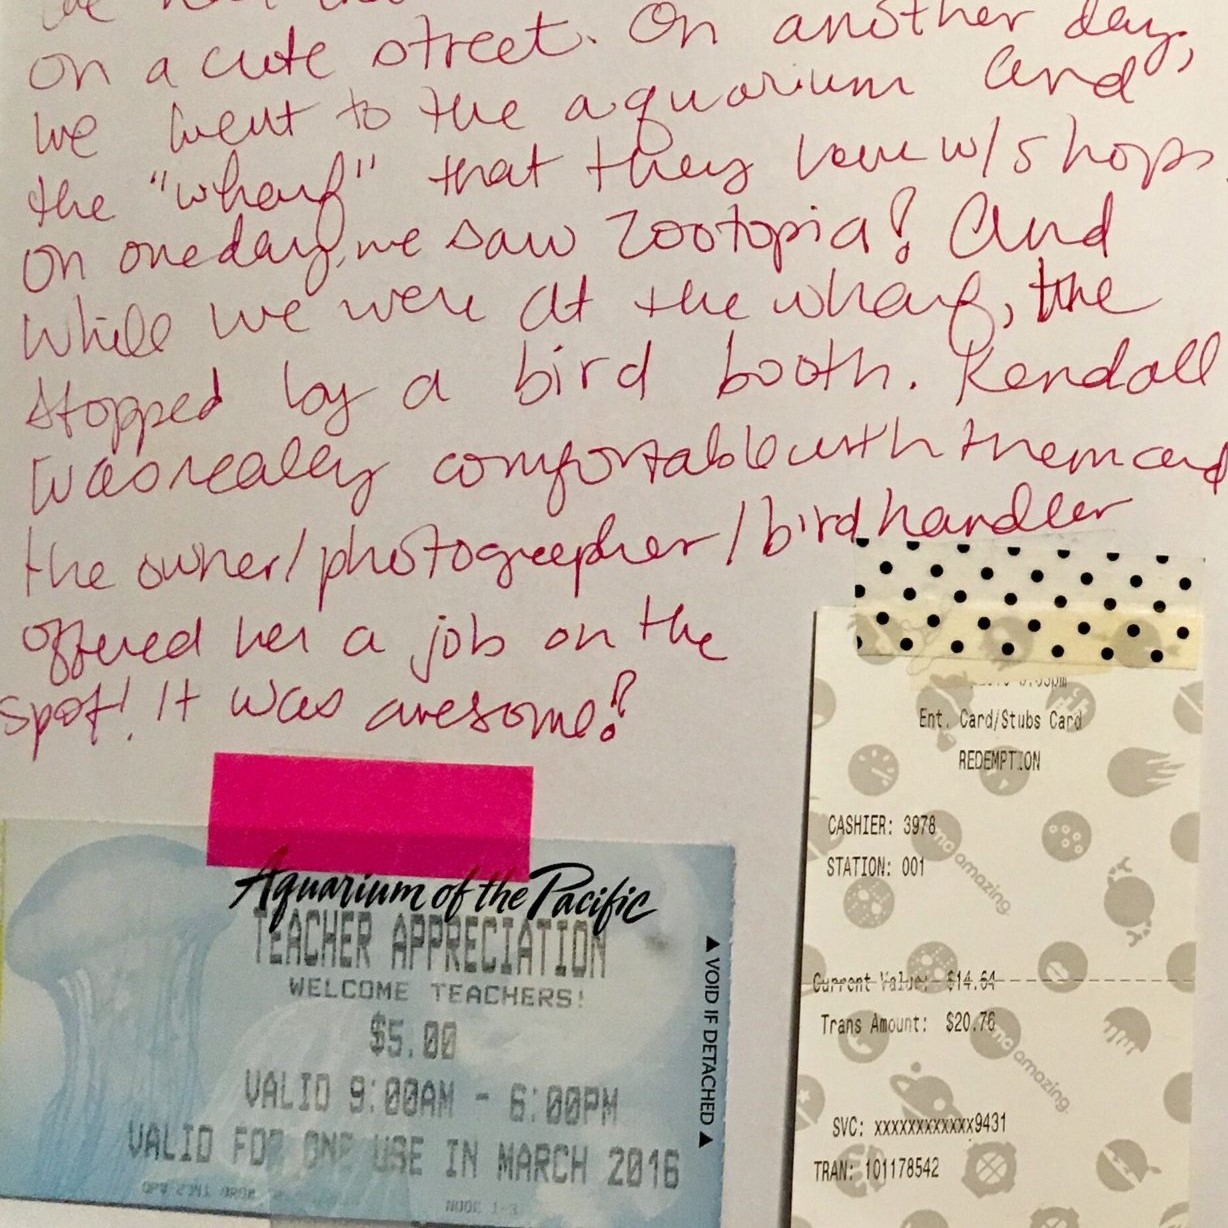 on a cute street. On another day,
we went to the aquarium and
the "wharf" that they have w/ shops.
On one day, we saw Zootopia! And
while we were at the wharf, the
stopped by a bird booth. Kendall
was really comfortable with them and
the owner/photographer/bird handler
offered her a job on the
spot! It was awesome!
Aquarium of the Pacific
TEACHER APPRECIATION
WELCOME TEACHERS!
$5.00
VALID 9:00AM - 6:00PM
VALID FOR ONE USE IN MARCH 2016
▲ VOID IF DETACHED ▲
Ent. Card/Stubs Card
REDEMPTION
CASHIER: 3978
STATION: 001
amc amazing.
Current Value: $14.64
Trans Amount: $20.76
amc amazing.
SVC: xxxxxxxxxxxx9431
TRAN: 101178542